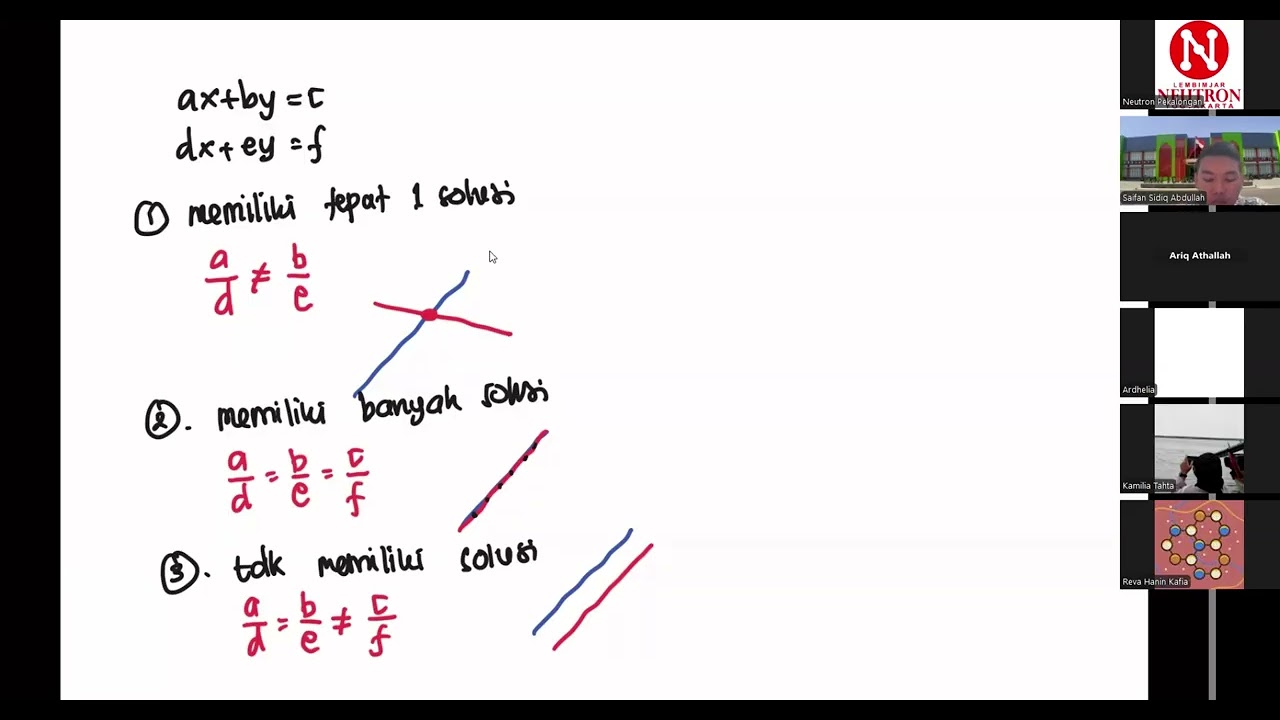 ax+by=c
dx+ey=f
① memiliki tepat 1 solusi
a/d ≠ b/e
②. memiliki banyak solusi
a/d = b/e = c/f
③. tdk memiliki solusi
a/d = b/e ≠ c/f
N
LEMBIMJAR
NEUTRON
Neutron Pekalongan
Saifan Sidiq Abdullah
Ariq Athallah
Ardhelia
Kamilia Tahta
Reva Hanin Kafia